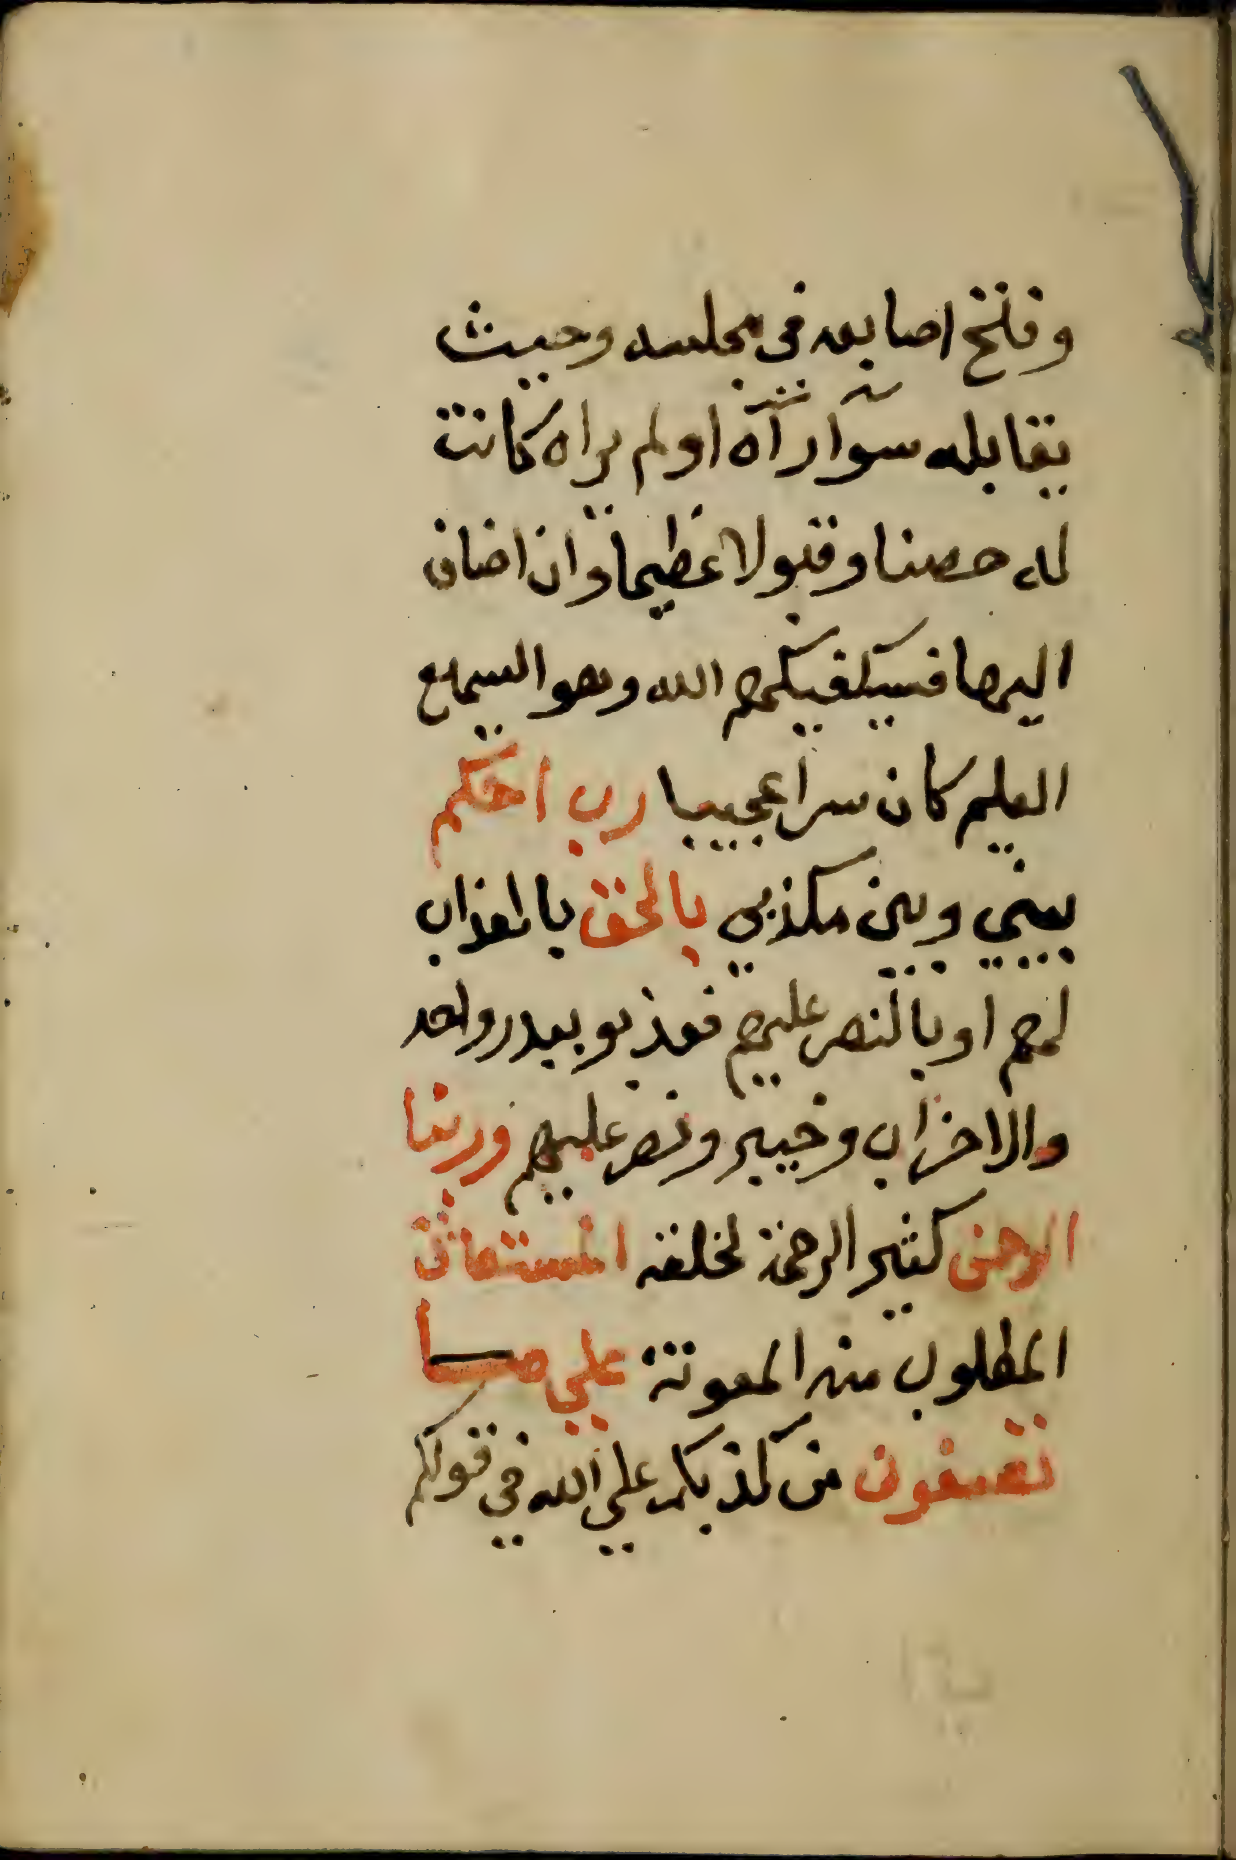 وفتح اصابعه في مجلسه وحيث
يقابله سوآ رآه او لم يراه كانت
له حصنا وقبولا عظيما وان اضاف
اليها فسيكفيكهم الله وهو السميع
العليم كان سرا عجيبا رب احكم
بيني وبين مكذبي بالحق بالعذاب
لهم او بالنصر عليهم فعذبو ببدر واحد
والاحزاب وخيبر ونصر عليهم وربنا
الرحمن كثير الرحمة لخلقه المستعان
المطلوب منه المعونة علي ما
تصفون من كذبكم علي الله في قولكم